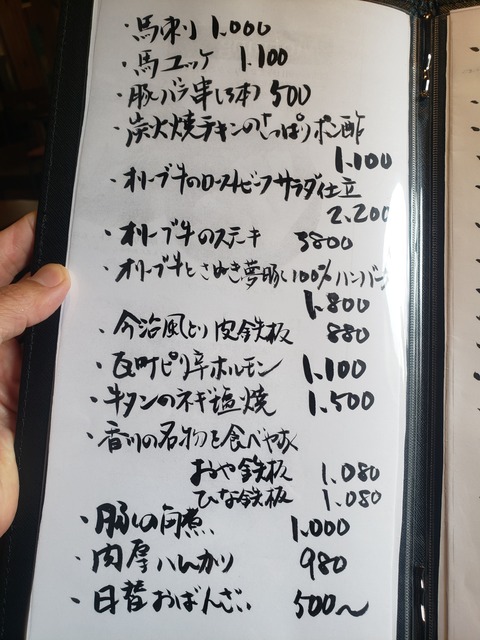 ・馬刺し 1.000
・馬ユッケ 1.100
・豚バラ串(3本) 500
・炭火焼チキンのさっぱりポン酢
1.100
・オリーブ牛のローストビーフサラダ仕立
2.200
・オリーブ牛のステーキ 3800
・オリーブ牛とさぬき夢豚の100%ハンバーグ
1.800
・今治風とり皮鉄板 880
・瓦町ピリ辛ホルモン 1.100
・牛タンのネギ塩焼 1.500
・香川の名物を食べやす
おや鉄板 1.080
ひな鉄板 1.080
・豚の角煮 1.000
・肉厚ハムカツ 980
・日替おばんざい 500〜